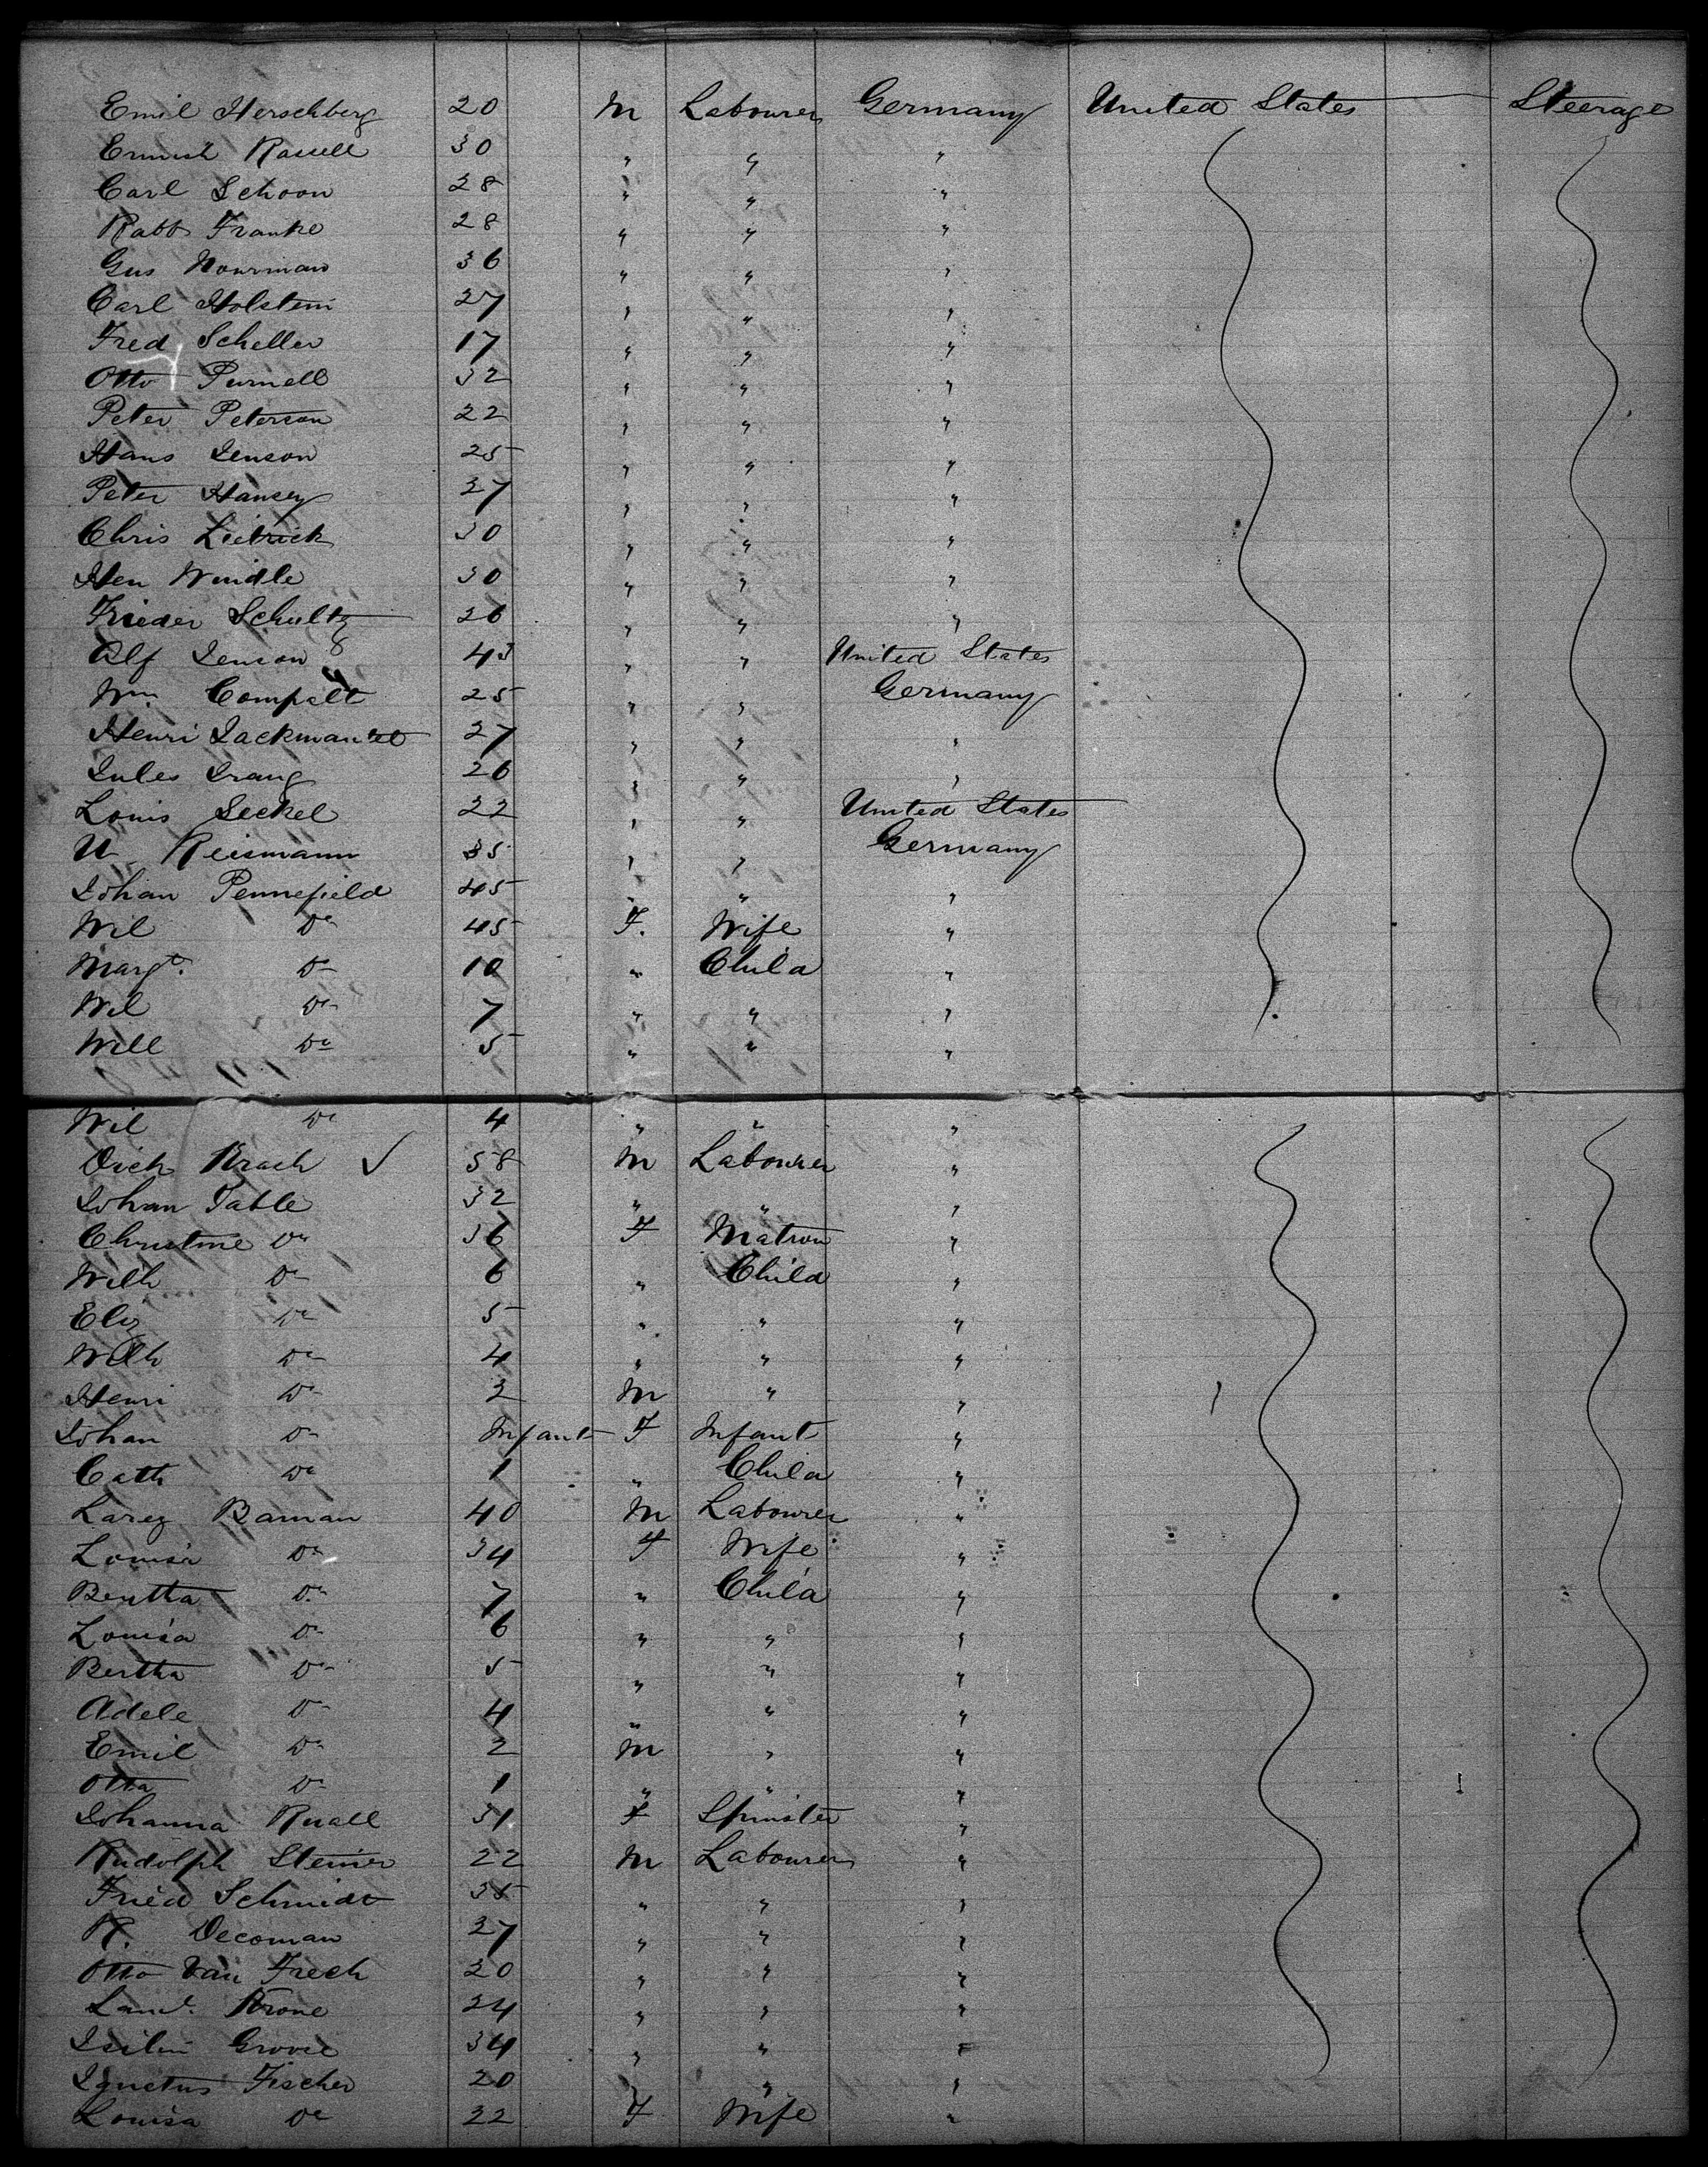 Emil Herschberg 20 M Labourer Germany United States Steerage
Russell 30 " " "
Carl Schoon 28 " " "
Rabb Franke 28 " " "
Gus Nourman 36 " " "
Carl Holstein 27 " " "
Fred Scheller 17 " " "
Otto Purnell 32 " " "
Peter Peterson 22 " " "
Hans Jenson 25 " " "
Peter Hansen 27 " " "
Chris Lietrick 30 " " "
Hen Windle 30 " " "
Frieder Schultz 26 " " "
Alf Jenson 43 " " United States
Wm. Compalt 25 " " Germany
Henri 27 " " "
Jules 26 " " "
Louis Seckel 22 " " United States
W Reismann 35 " " Germany
Johan Pennefield 45 " " "
Wil Do 45 F. Wife "
Margt. Do 10 " Child "
Wil Do 7 " " "
Will Do 5 " " "
Wil Do 4 " " "
Dich Krach ✓ 58 M Labourer "
Johan Table 32 " " "
Christine Do 36 F Matron "
Wilh Do 6 " Child "
Eliz Do 5 " " "
Wilh Do 4 " " "
Henri Do 2 M " "
Johan Do Infant F Infant "
Cath Do 1 " Child "
Larez Baman 40 M Labourer "
Louisa Do 34 F Wife "
Bertha Do 7 " Child "
Louisa Do 6 " " "
Bertha Do 5 " " "
Adele Do 4 " " "
Emil Do 2 M " "
Otta Do 1 " " "
Johanna Ruall 31 F Spinster "
Rudolph Steiner 22 M Labourer "
Fried Schmidt 35 " " "
R. Decoman 27 " " "
Otto Van Frech 20 " " "
Krone 24 " " "
Grove 34 " " "
Ignetus Fischer 20 " " "
Louisa Do 22 F Wife "